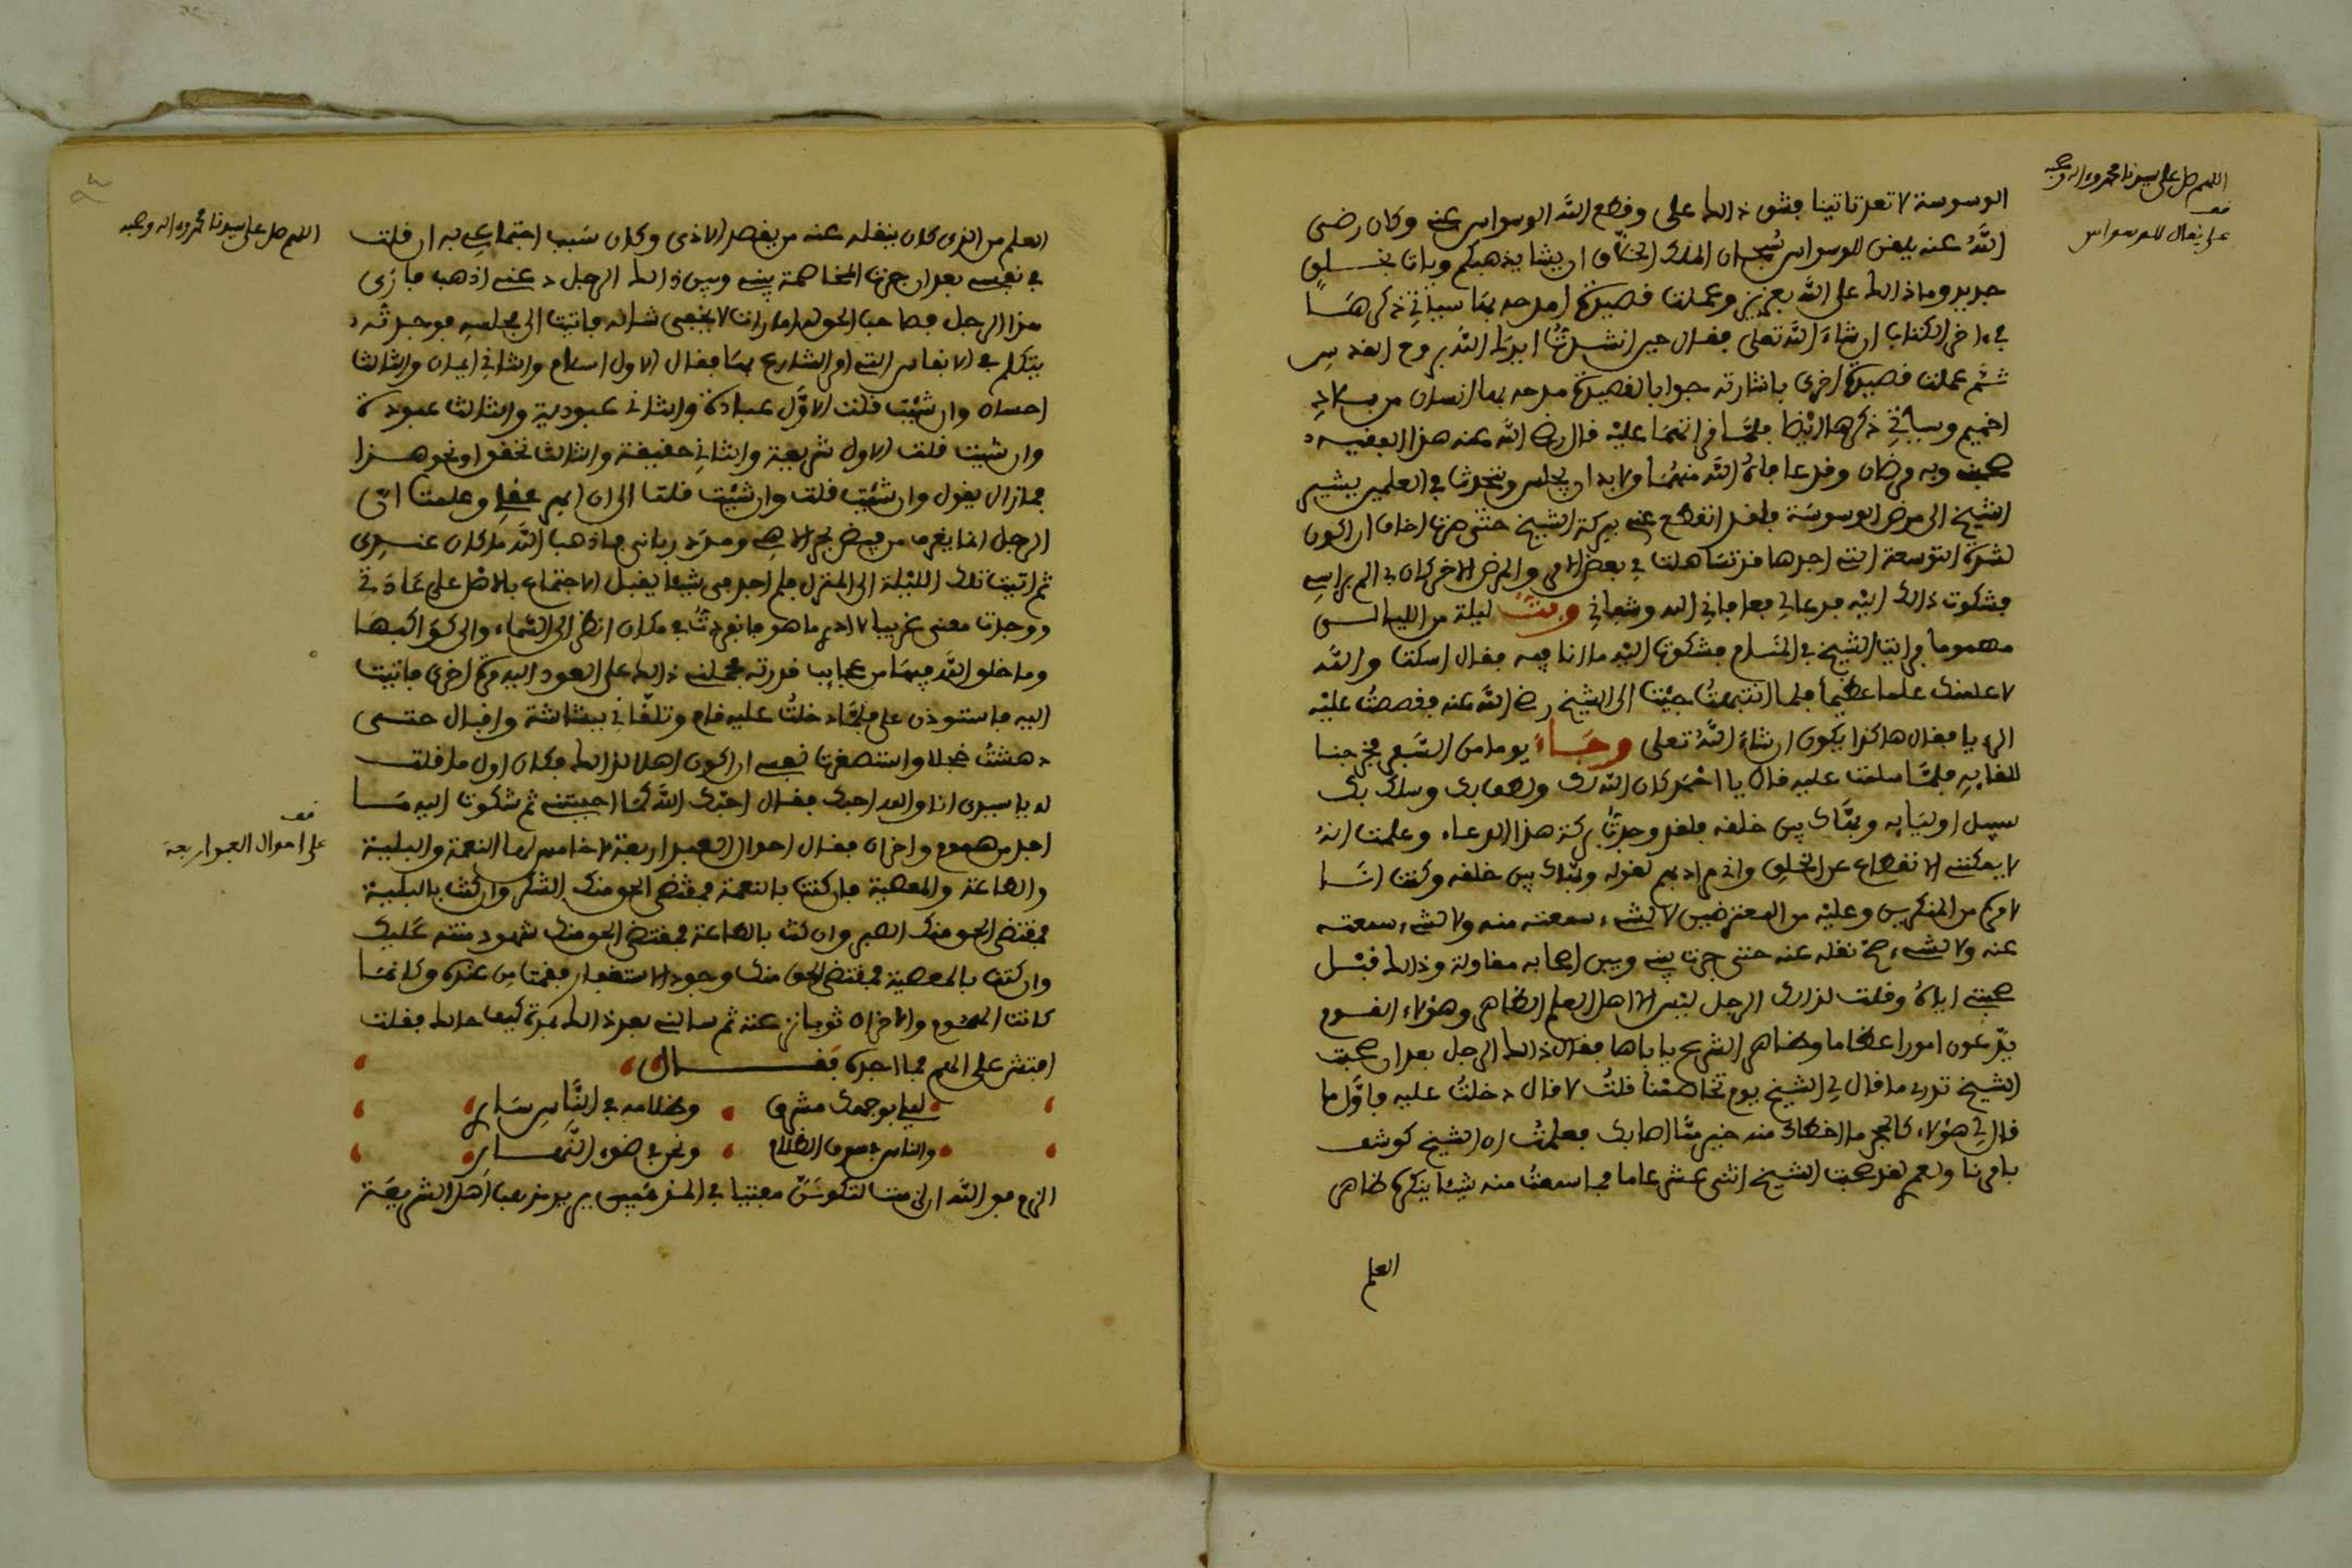 اللهم صل على سيدنا محمد وءاله وصحبه
قف
على ما يقال للوسواس
الوسوسة لا تعد تاتينا فشق ذلك على وقطع الله الوسواس عنى وكان رضى
الله عنه يلقن للوسواس سبحان الملك الخلاق ان يشا يذهبكم ويات بخلق
جديد وما ذلك على الله بعزيز وعملت قصيدة امدحه بها سياتي ذكرها
في ءاخر الكتاب ان شاء الله تعلى فقال حين انشدتها ايدك الله بروح القدس
ثم عملت قصيدة اخرى باشارته جوابا لقصيدة مدحه بها انسان من بلاد
اخميم وسياتي ذكرها ايضا فلما قرئتها عليه قال رضي الله عنه هذا الفقيه
صحبنى وبه مرضان وقد عافاه الله منهما ولا بد ان يجلس ويتحدث في العلمين يشير
الشيخ الى مرض الوسوسة فلقد انقطع عنى ببركة الشيخ حتى صرت اخاف ان اكون
لشدة التوسعة التى اجدها قد تساهلت في بعض الامر والمرض الاخر كان بي الم براسي
فشكوت ذلك اليه فدعا لي فعافاني الله وشفاني وبت ليلة من الليالي
مهموما فرايت الشيخ في المنام فشكوت اليه ما انا فيه فقال اسكت والله
لاعلمنك علما عظيما فلما انتبهت جئت الى الشيخ رضي الله عنه فقصصت عليه
الرءيا فقال هكذا يكون ان شاء الله تعلى وجاء يوما من السفر فخرجنا
للقايه فلما سلمت عليه قال يا احمد كان الله لك ولطف بك وسلك بك
سبيل اوليايه وبهاك بين خلقه فلقد وجدت بركة هذا الدعاء وعلمت انه
لا يمكننى الانقطاع عن الخلق واني مراد بهم لقوله وبهاك بين خلقه وكنت انا
لامره من المنكرين وعليه من المعترضين لا لشىء سمعته منه ولا لشىء سمعته
عنه ولا لشىء صح نقله عنه حتى جرت بينى وبين اصحابه مقاولة وذلك قبل
صحبتى اياه وقلت لذلك الرجل ليس الا اهل العلم الظاهر وهؤلاء القوم
يدعون امورا عظاما وظاهر الشرع ياباها فقال ذلك الرجل بعد ان صحبت
الشيخ تدري ما قال لي الشيخ يوم تخاصمنا قلت لا قال دخلت عليه فاول ما
قال لي هؤلاء كالحجر ما اخطاك منه خير مما اصابك فعلمت ان الشيخ كوشف
بامرنا ولعمري لقد صحبت الشيخ اثنى عشر عاما فما سمعت منه شيئا ينكره ظاهر
العلم
اللهم صل على سيدنا محمد وءاله وصحبه
العلم من الذى كان ينقله عنه من يقصد الاذى وكان سبب اجتماعي به ان قلت
في نفسى بعد ان جرت المخاصمة بينى وبين ذلك الرجل دعنى اذهب فارى
هذا الرجل فصاحب الحق له امارات لا يخفى شانه فاتيت الى مجلسه فوجدته
يتكلم في الانفاس التى امر الشارع بها فقال الاول اسلام والثاني ايمان والثالث
احسان وان شئت قلت الاول عبادة والثانى عبودية والثالث عبودة
وان شئت قلت الاول شريعة والثاني حقيقة والثالث تحقق او نحو هذا
فما زال يقول وان شئت قلت وان شئت قلت الى ان ابهر عقلي وعلمت ان
الرجل انما يغرف من فيض بحر الاهى ومدد ربانى فاذهب الله ما كان عندى
ثم اتيت تلك الليلة الى المنزل فلم اجد في شيئا يقبل الاجتماع بالاهل على عادتي
ووجدت معنى غريبا لا ادري ما هو فانفردت في مكان انظر الى السماء والى كواكبها
وما خلق الله فيها من عجايب قدرته فحملنى ذلك على العود اليه مرة اخرى فاتيت
اليه فاستوذن على فلما دخلت عليه قام وتلقاني ببشاشة واقبال حتى
دهشت خجلا واستصغرت نفسى ان اكون اهلا لذلك فكان اول ما قلت
له يا سيدى انا والله احبك فقال احبك الله كما احببتنى ثم شكوت اليه ما
اجد من هموم واحزان فقال احوال العبد اربعة لا خامس لها النعمة والبلية
والطاعة والمعصية فان كنت بالنعمة فمقتضى الحق منك الشكر وان كنت بالبلية
فمقتضى الحق منك الصبر وان كنت بالطاعة فمقتضى الحق منك شهود منته عليك
وان كنت بالمعصية فمقتضى الحق منك وجود الاستغفار فقمت من عنده وكانما
كانت الهموم والاحزان ثوبا نزعته ثم سالنى بعد ذلك بمدة كيف حالك فقلت
افتش على الهم فما اجده فقال
ليلي بوجهك مشرق وظلامه في الناس سار
والناس في سدف الظلام ونحن في ضوء النهار
الزم فوالله ان لزمت لتكونن مفتيا في المذهبين يريد مذهب اهل الشريعة
قف
على احوال العبد اربعة